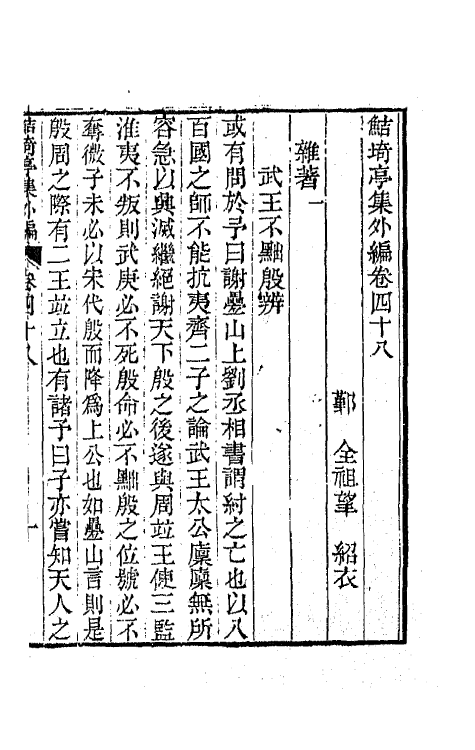 鮚埼亭集外編卷四十八
鄞 全祖望 紹衣
雜著一
武王不黜殷辨
或有問於予曰謝疊山上劉丞相書謂紂之亡也以八
百國之師不能抗夷齊二子之論武王太公廩廩無所
容急以興滅繼絕謝天下殷之後遂與周竝王使三監
淮夷不叛則武庚必不死殷命必不黜殷之位號必不
奪微子未必以宋代殷而降爲上公也如疊山言則是
殷周之際有二王竝立也有諸予曰子亦嘗知天人之
鮚埼亭集外編 卷四十八 一